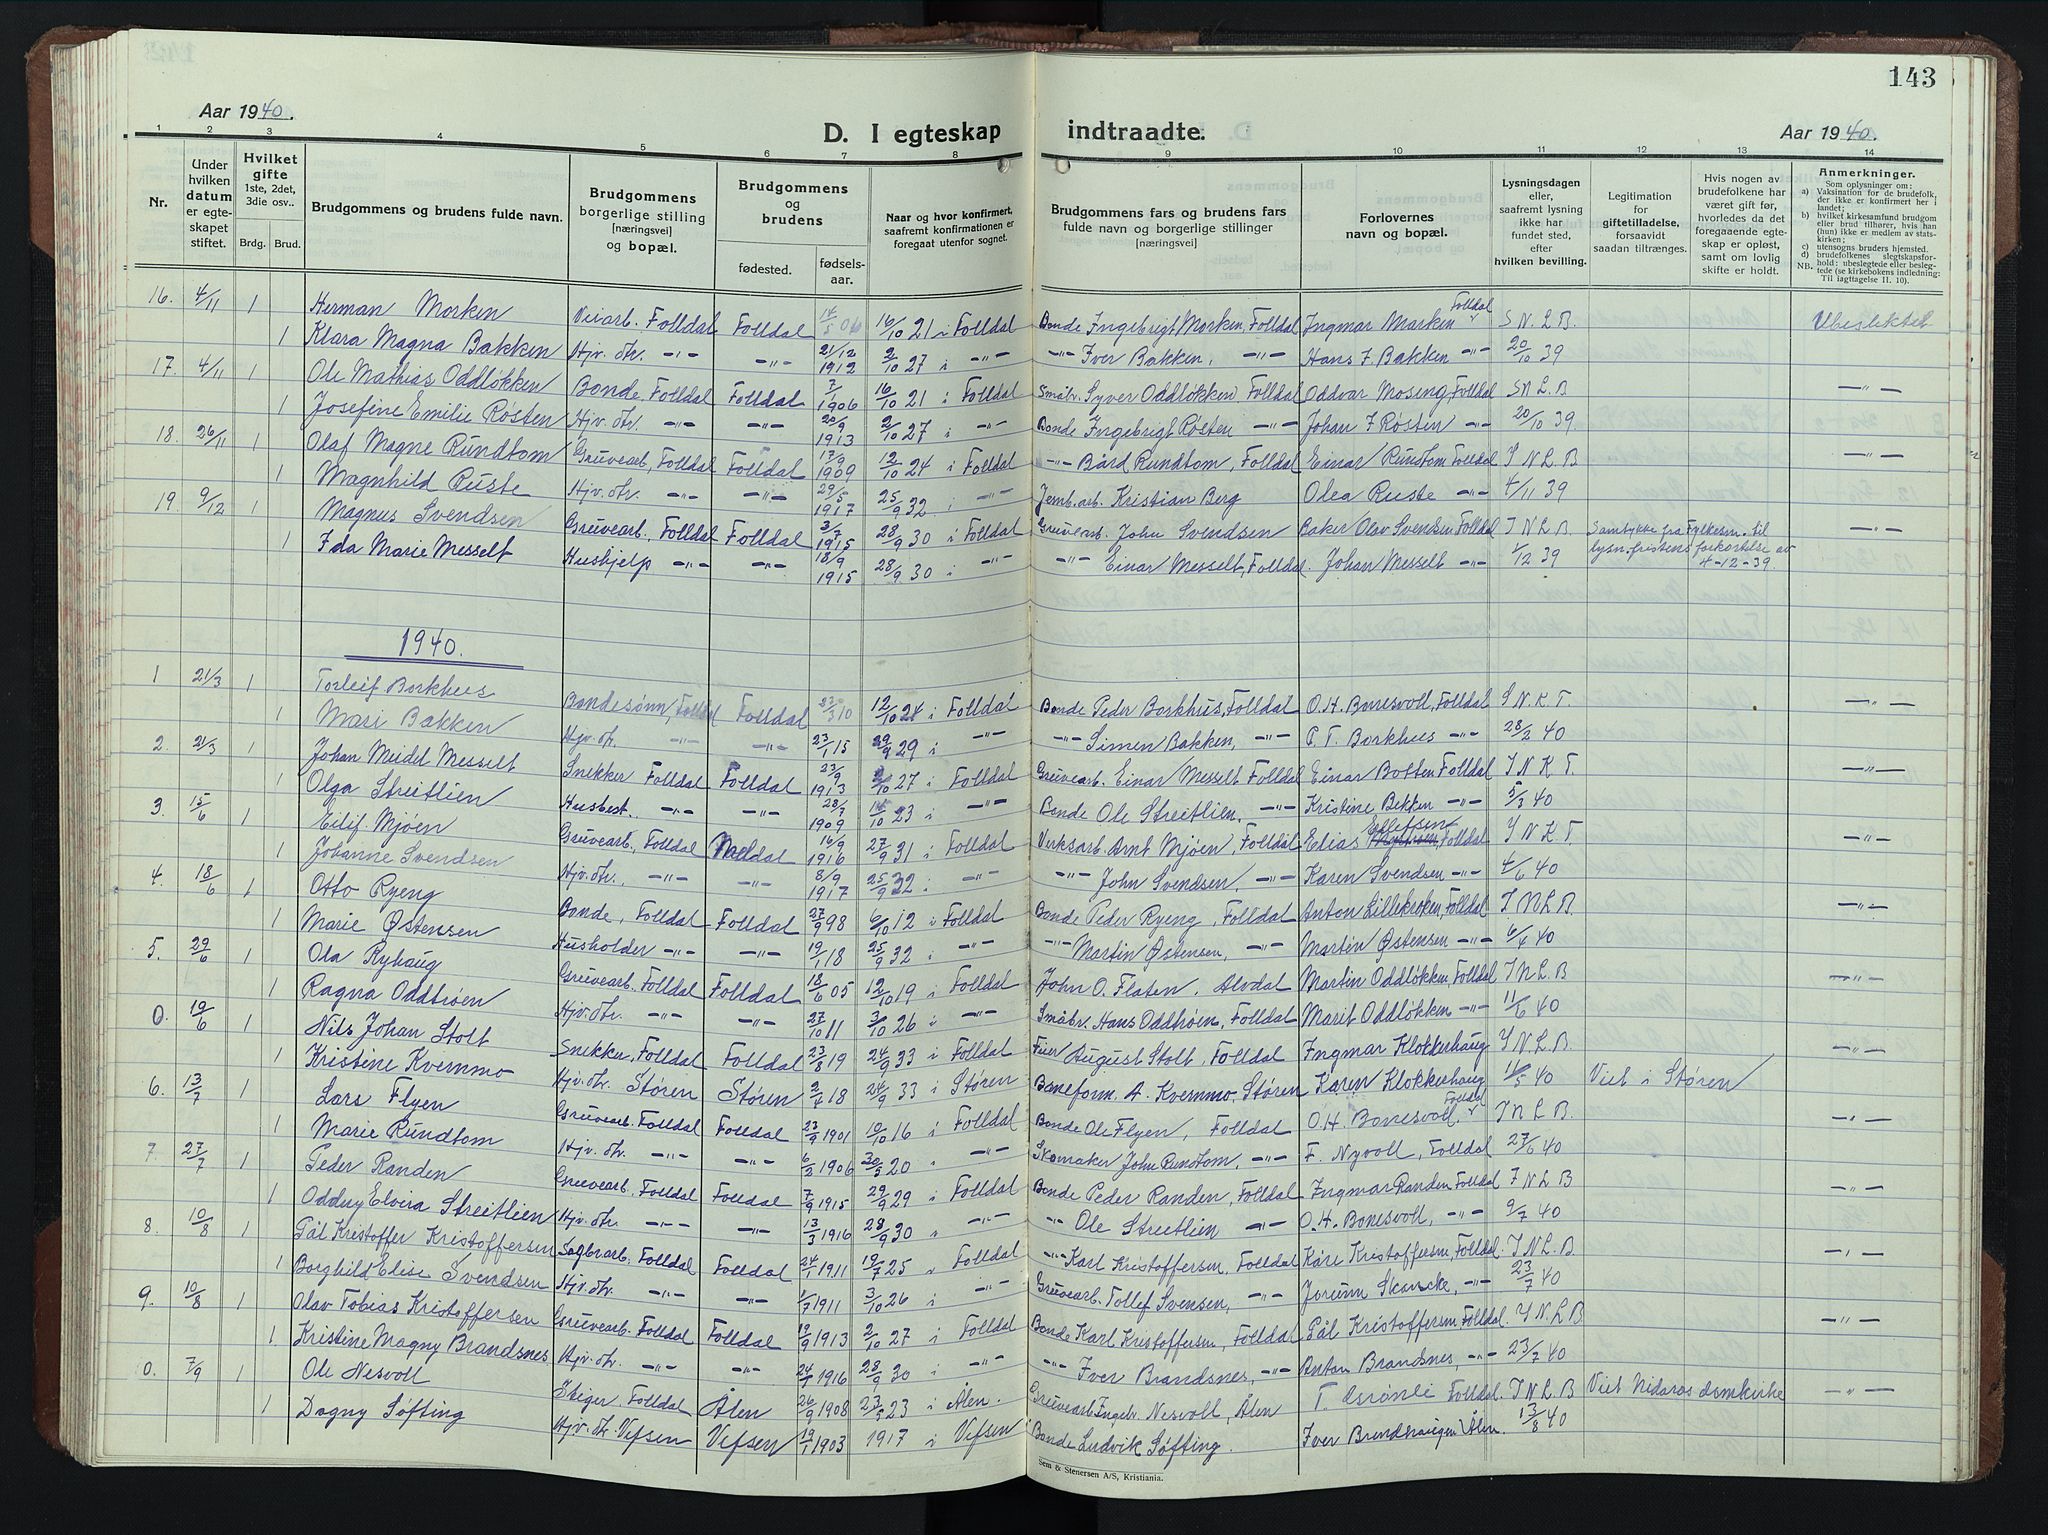 143
Aar 1940.
D. I egteskap
indtraadte.
Aar 1940.
1 2 3 4 5 6 7 8 9 10 11 12 13 14
Nr.
Under hvilken datum er egteskapet stiftet.
Hvilket gifte 1ste, 2det, 3die osv..
Brdg. Brud.
Brudgommens og brudens fulde navn.
Brudgommens borgerlige stilling [næringsvei] og bopæl.
Brudgommens og brudens
fødested.
fødselsaar.
Naar og hvor konfirmert, saafremt konfirmationen er foregaat utenfor sognet.
Brudgommens fars og brudens fars fulde navn og borgerlige stillinger [næringsvei]
Forlovernes navn og bopæl.
Lysningsdagen eller, saafremt lysning ikke har fundet sted, efter hvilken bevilling.
Legitimation for giftetilladelse, forsaavidt saadan tiltrænges.
Hvis nogen av brudefolkene har været gift før, hvorledes da det foregaaende egteskap er opløst, samt om lovlig skifte er holdt.
Anmerkninger.
Som oplysninger om:
a) Vaksination for de brudefolk, der ikke er konfirmert her i landet;
b) hvilket kirkesamfund brudgom eller brud tilhører, hvis han (hun) ikke er medlem av statskirken;
c) utensogns bruders hjemsted.
d) brudefolkenes slegtskapsforhold: ubeslegtede eller beslegtede (se kirkebokens indledning: Til iagttagelse II. 10).
NB.
16. 4/11 1 Herman Morken Veiarb. Folldal Folldal 14/5 06 16/10 21 i Folldal Bonde Ingebrigt Morken, Folldal Ingmar Morken Folldal S. N. L. B. Ubeslektet
1 Klara Magna Bakken Hjv. dtr. -"- -"- 21/12 1912 2/10 27 i -"- -"- Iver Bakken, -"- Hans I Bakken -"- 20/10 39
17. 4/11 1 Ole Mathias Oddløkken Bonde, Folldal Folldal 7/1 1906 16/10 21 i Folldal Småbr. Syver Oddløkken, Folldal Oddvar Mosing, Folldal S N. L. B -"-
1 Josefine Emilie Røsten Hjv. dtr. -"- -"- 20/9 1913 2/10 27 i -"- Bonde Ingebrigt Røsten -"- Johan I Røsten -"- 20/10 39
18. 26/11 1 Olaf Magne Rundtom Gruvearb, Folldal Folldal 17/9 1909 12/10 24 i Folldal -"- Bård Rundtom, Folldal Einar Rundtom Folldal S N L. B -"-
1 Magnhild Ruste Hjv. dtr. -"- -"- 29/5 1917 25/9 32 i -"- Jernb.arb. Kristian Berg Olea Ruste -"- 4/11 39
19. 9/12 1 Magnus Svendsen Gruvearb. Folldal Folldal 3/7 1915 28/9 30 i Folldal Gruvearb. John Svendsen Baker Olav Svendsen Folldal S N L B. Samtykke fra Fylkesm. til lysn.fristens forkortelse av 4-12-39 -"-
1 Ida Marie Messelt Hushjelp -"- -"- 18/9 1915 28/9 30 i -"- -"- Einar Messelt, Folldal. Johan Messelt -"- 1/12 39
1940.
1 21/3 1 Torleif Borkhus Bondesønn, Folldal Folldal 23/3 10 12/10 24 i Folldal Bonde Peder Borkhus, Folldal O. H. Bonesvoll, Folldal S N. K T. -"-
1 Mari Bakken Hjv. dtr. -"- -"- 23/1 15 29/9 29 i -"- -"- Simen Bakken, -"- P. T. Borkhus -"- 28/2 40
2. 21/3 1 Johan Meidel Messelt Snekker Folldal Folldal 23/9 1913 2/10 27 i Folldal Gruvearb. Einar Messelt Folldal Einar Botten Folldal S N K T. -"-
1 Olga Streitlien Husbest. -"- -"- 28/7 1909 15/10 23 i -"- Bonde Ole Streitlien, -"- Kristine Bekken -"- 5/3 40
3. 15/6 1 Eilif Mjøen Gruvearb., Folldal Meldal 16/9 1916 27/9 31 i Folldal Verksarb. Arnt Mjøen, Folldal Elias Ellefsen, Folldal S N K T. -"-
1 Johanne Svendsen Hjv. dtr., -"- -"- 8/9 1917 25/9 32 i -"- -"- John Svendsen, -"- Karen Svendsen -"- 4/6 40
4. 18/6 1 Otto Ryeng Bonde, Folldal Folldal 27/9 98 6/10 12 i Folldal Bonde Peder Ryeng, Folldal Anton Lillekroken, Folldal S N L B. -"-
1 Marie Østensen Husholder -"- -"- 19/1 18 25/9 32 i -"- -"- Martin Østensen, -"- Martin Østensen -"- 6/4 40
5. 29/6 1 Ola Ryhaug Gruvearb. Folldal Folldal 18/6 05 12/10 19 i Folldal John O. Flaten, Alvdal Martin Oddløkken Folldal S N L. B -"-
1 Ragna Oddtrøen Hjv. dtr. -"- -"- 27/10 11 3/10 26 i -"- Småbr. Hans Oddtrøen, Folldal Marit Oddløkken -"- 11/6 40
0. 19/6 1 Nils Johan Stolt Snekker, Folldal Folldal 23/8 19 24/9 33 i Folldal Feier August Stolt, Folldal Ingmar Klokkerhaug S N L. B. -"-
1 Kristine Kvernmo Hjv. dtr. Støren Støren 2/4 18 24/9 33 i Støren Baneform. A. Kvernmo, Støren Karen Klokkerhaug Folldal 11/5 40 Viet i Støren
6. 13/7 1 Lars Flyen Gruvearb. Folldal Folldal 23/9 1901 10/10 16 i Folldal Bonde Ole Flyen, Folldal O. H. Bonesvoll, S N L B. -"-
1 Marie Rundtom Hjv. dtr. -"- -"- 6/2 1906 30/5 20 " -"- Skomaker John Rundtom, -"- F. Nyvoll, Folldal 27/6 40
7. 27/7 1 Peder Randen Gruvearb, Folldal Folldal 7/9 1915 29/9 29 " Folldal Bonde Peder Randen, Folldal Ingmar Randen Folldal S N L B -"-
1 Oddny Elvira Streitlien Hjv. dtr. -"- -"- 13/3 1916 28/9 30 " -"- -"- Ole Streitlien -"- O. H. Bonesvoll, -"- 9/7 40
8. 10/8 1 Pål Kristoffer Kristoffersen Sagbrarb. Folldal Folldal 24/1 1911 19/7 25 " Folldal -"- Karl Kristoffersen, Folldal Kåre Kristoffersen, Folldal. S N L. B -"-
1 Borghild Elise Svendsen Hjv. dtr. -"- -"- 1/7 1911 3/10 26 " -"- Gruvearb. Tollef Svensen, -"- Jorunn Skancke, -"- 23/7 40
9. 10/8 1 Olav Tobias Kristoffersen Gruvearb. Folldal Folldal 19/9 1913 2/10 27 i Folldal Bonde Karl Kristoffersen, Folldal Pål Kristoffersen, Folldal. S N. L B -"-
1 Kristine Magny Brandsnes Hjv. dtr. -"- -"- 24/1 1916 28/9 30 " -"- -"- Iver Brandsnes, -"- Anton Brandsnes, -"- 23/7 40
0. 7/9 1 Ole Nesvoll Stiger, Folldal Ålen 26/9 1908 23/5 23 i Ålen. Gruvearb Ingebr. Nesvoll, Ålen T. Folldal. S N L B Viet Nidaros domkirke -"-
1 Dagny Søfting Hjv. dtr Vefsen Vefsen 19/1 1903 1917 i Vefsen Bonde Ludvik Søfting. Iver Brendhaugen, Ålen 13/8 40
Sem & Stenersen A/S, Kristiania.